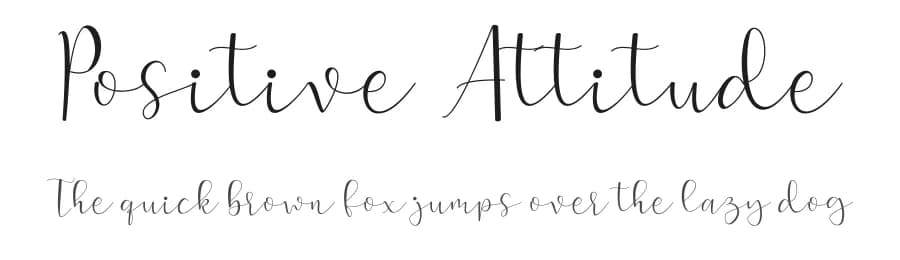 Positive Attitude
The quick brown fox jumps over the lazy dog